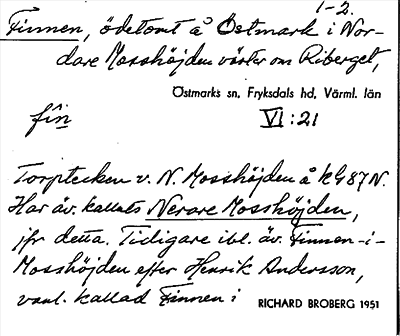 1-2.
Finnen, ödetomt å Östmark i Nor-
dare Mosshöjden väster om Riberget,
Östmarks sn, Fryksdals hd, Värml. län
fîn VI:21
Torptecken v. N. Mosshöjden å k487N.
Har äv. kallats Nerare Mosshöjden,
jfr detta. Tidigare ibl. äv. Finnen-i-
Mosshöjden efter Henrik Andersson,
vanl. kallad Finnen i RICHARD BROBERG 1951